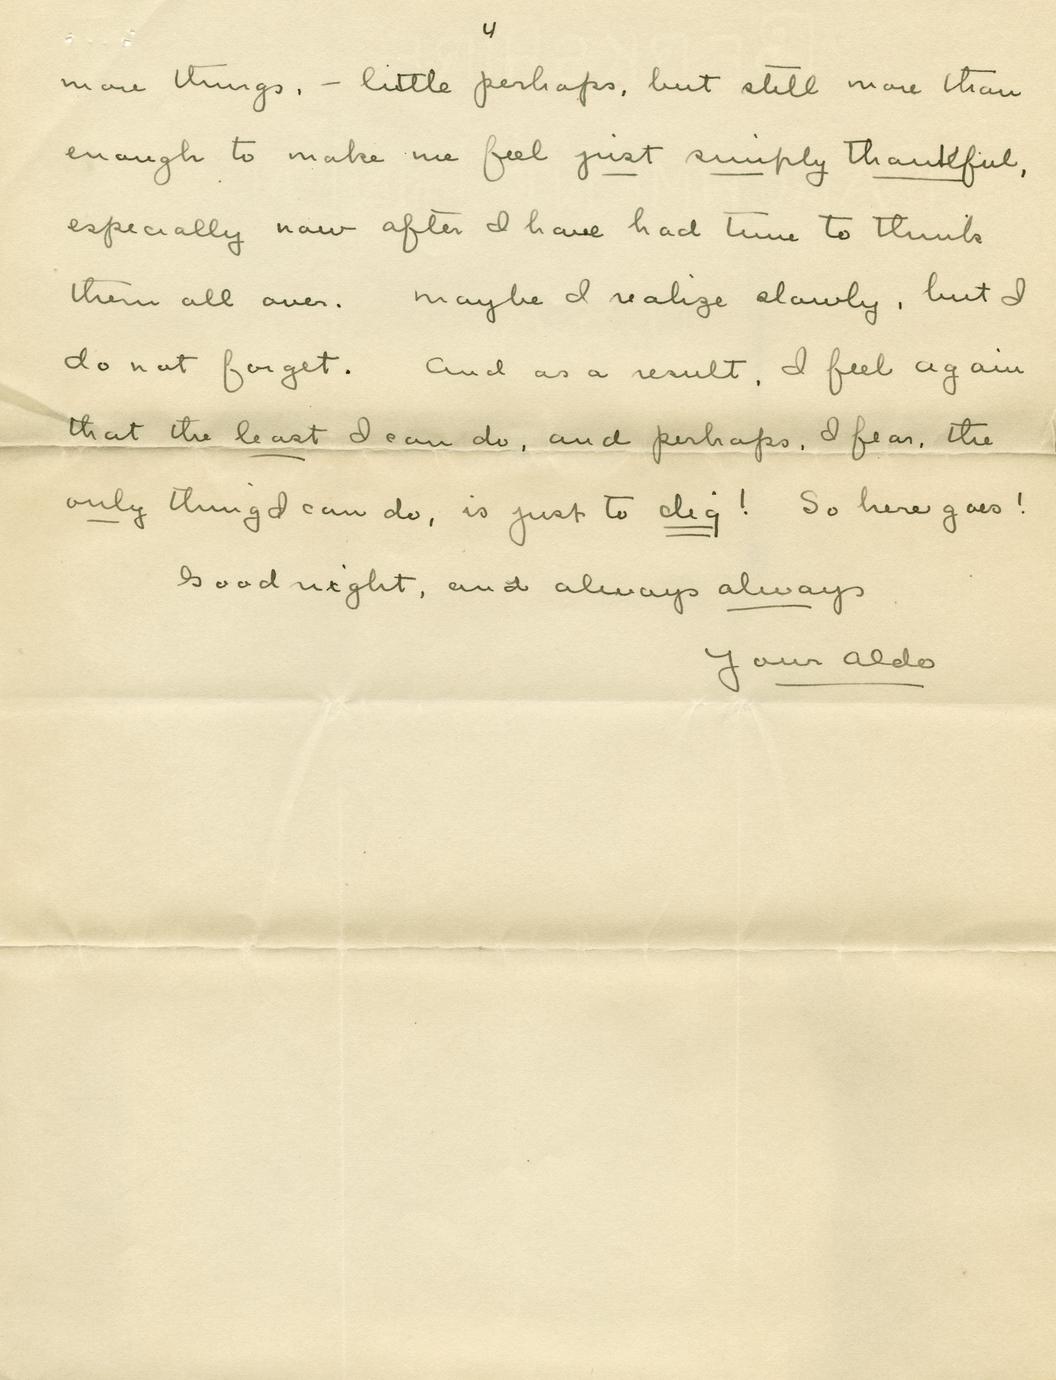 4
more things, – little perhaps, but still more than
enough to make me feel just simply thankful,
especially now after I have had time to think
them all over. Maybe I realize slowly, but I
do not forget. And as a result, I feel again
that the least I can do, and perhaps, I fear, the
only thing I can do, is just to dig! So here goes!
Good night, and always always
Your Aldo